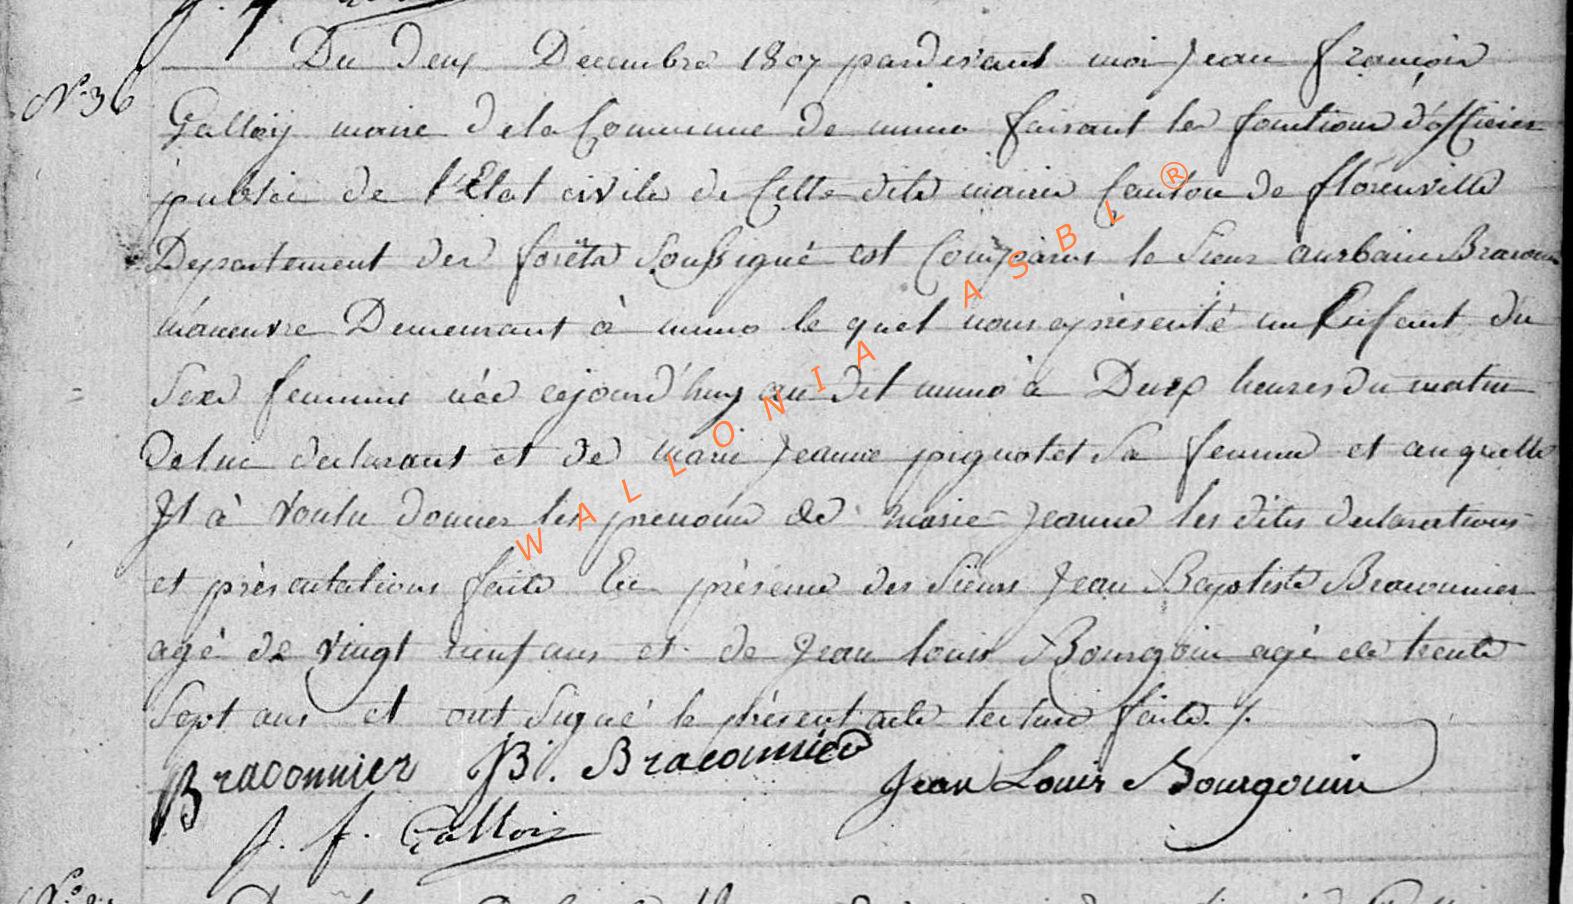 N° 36
Du deux Decembre 1807 pardevant moi Jean françois
Galloy maire de la Commune de muno faisant les fonctions d'officier
public de l'Etat civile de Cette dite mairie Canton de florenville
Departement des forêts Soussigné est Comparus le Sieur aurbain Bracon
maneuvre Demeurant à muno le quel nous aprésenté un Enfant du
Sexe feminin née cejourd'huy au dit muno à Deux heures du matin
De lui declarant et de marie Jeanne pignolet Sa femme et auquelle
Il à voulu donner les prenoms de marie Jeanne les dites declarations
et présentations faite En présence des Sieurs Jean Baptiste Braconnier
agé de vingt neuf ans et de Jean louis Bourgoin agé de trente
Sept ans et ont Signé le présent acte lecture faite ./.
Braconnier B. Braconnier Jean Louis Bourgouin
J. f. Gallois
WALLONIA ASBL ®